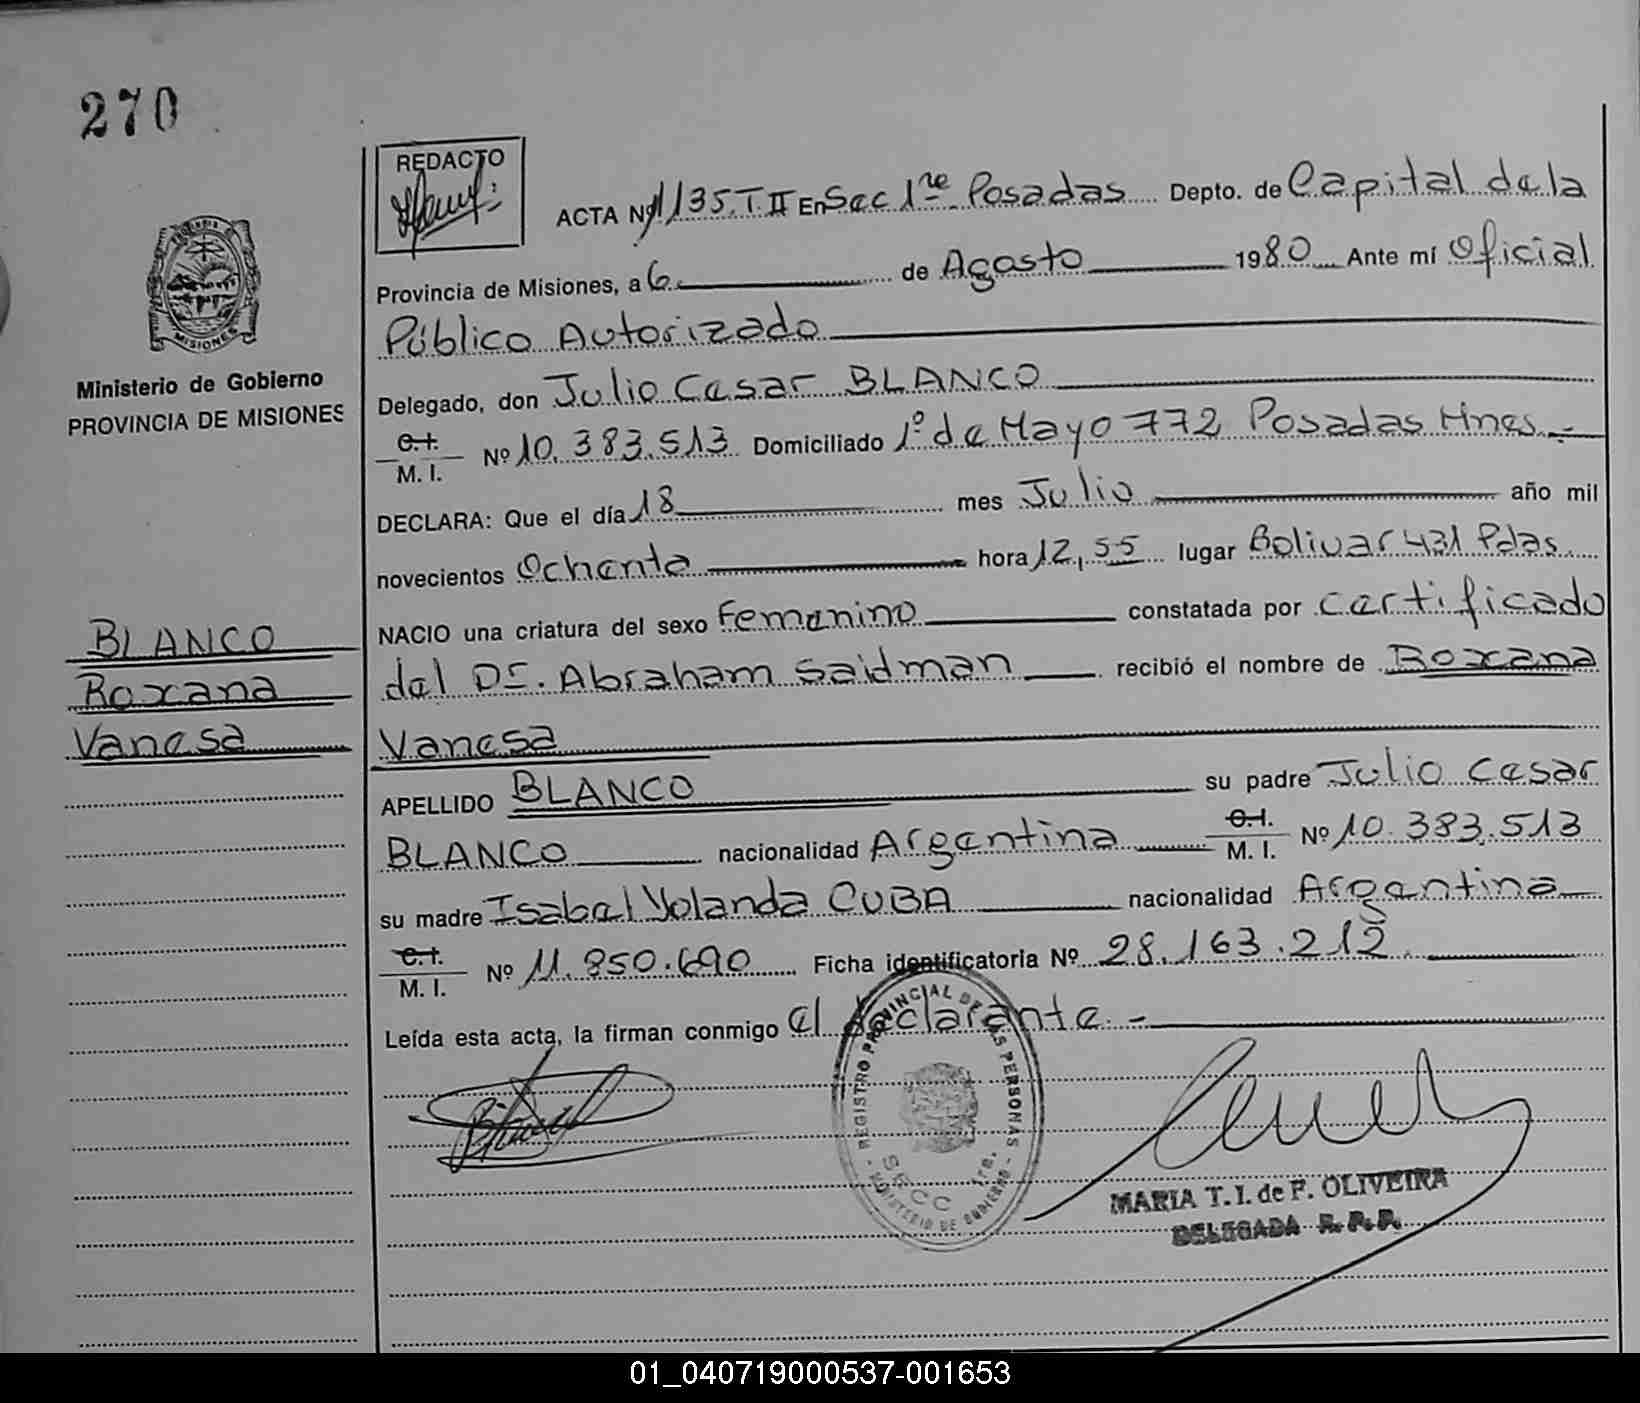 270
REDACTO
ACTA Nº 1135.T.II En Sec 1re Posadas Depto. de Capital de la
Provincia de Misiones, a 6 de Agosto 1980 Ante mí Oficial
Público Autorizado
Delegado, don Julio Cesar BLANCO
C.I. M. I. Nº 10.383.513 Domiciliado 1º de Mayo 772 Posadas Mnes.-
DECLARA: Que el día 18 mes Julio año mil
novecientos Ochenta hora 12,55 lugar Bolivar 431 Pdas.
NACIO una criatura del sexo Femenino constatada por certificado
del Dr. Abraham Saidman recibió el nombre de Roxana
Vanesa
APELLIDO BLANCO su padre Julio Cesar
BLANCO nacionalidad Argentina C.I. M. I. Nº 10.383.513
su madre Isabel Yolanda CUBA nacionalidad Argentina
C.I. M. I. Nº 11.850.690 Ficha identificatoria Nº 28.163.212
Leída esta acta, la firman conmigo el declarante.-
MISIONES
Ministerio de Gobierno
PROVINCIA DE MISIONES
BLANCO
Roxana
Vanesa
REGISTRO PROVINCIAL DE LAS PERSONAS
SECC 1ra.
MINISTERIO DE GOBIERNO
MARIA T. I. de F. OLIVEIRA
DELEGADA R. P. P.
01_040719000537-001653